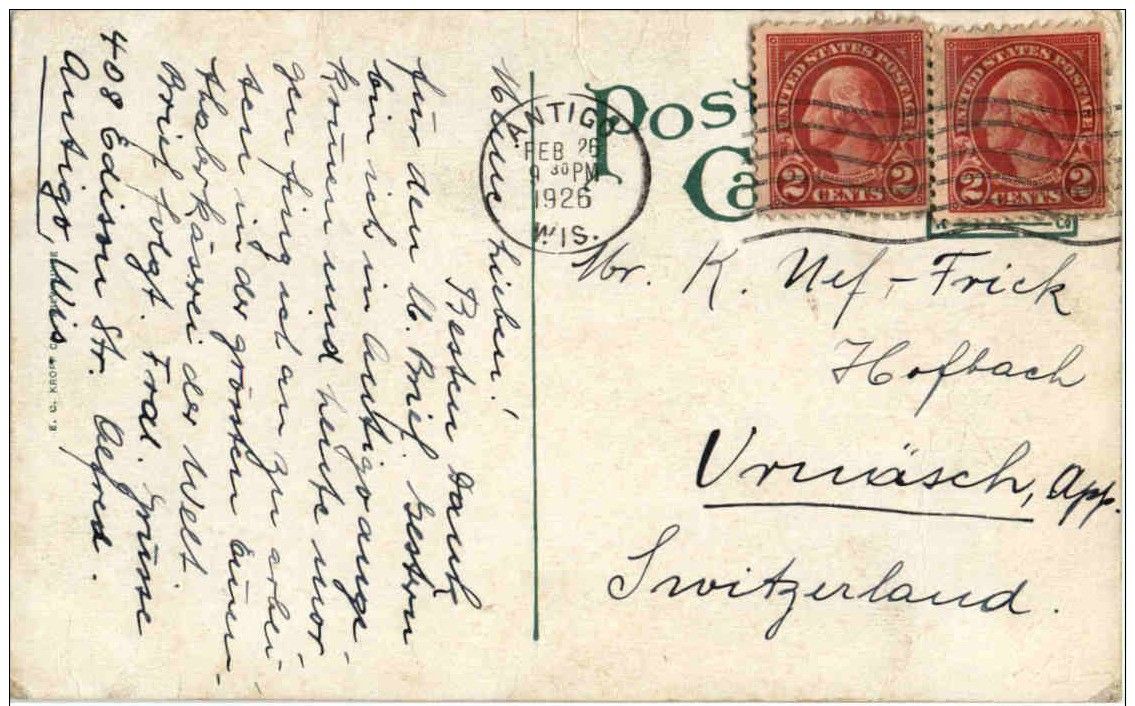 Meine Lieben!
Besten Dank
für den lb. Brief. Gestern
bin ich in Antigo ange-
kommen und heute mor-
gen fing ich an zu arbei-
ten in der grössten Linen-
käserei der Welt
Brief folgt. Frdl. Grüsse
Alfred.
408 Edison Str.
Antigo, Wis.
E. C. KROPP CO.
Post
Ca
ANTIGO
FEB 26
9 30 PM
1926
WIS.
UNITED STATES POSTAGE
2 CENTS 2
UNITED STATES POSTAGE
2 CENTS 2
Mr. K. Nef-Frick
Hofbach
Urnäsch, App.
Switzerland.